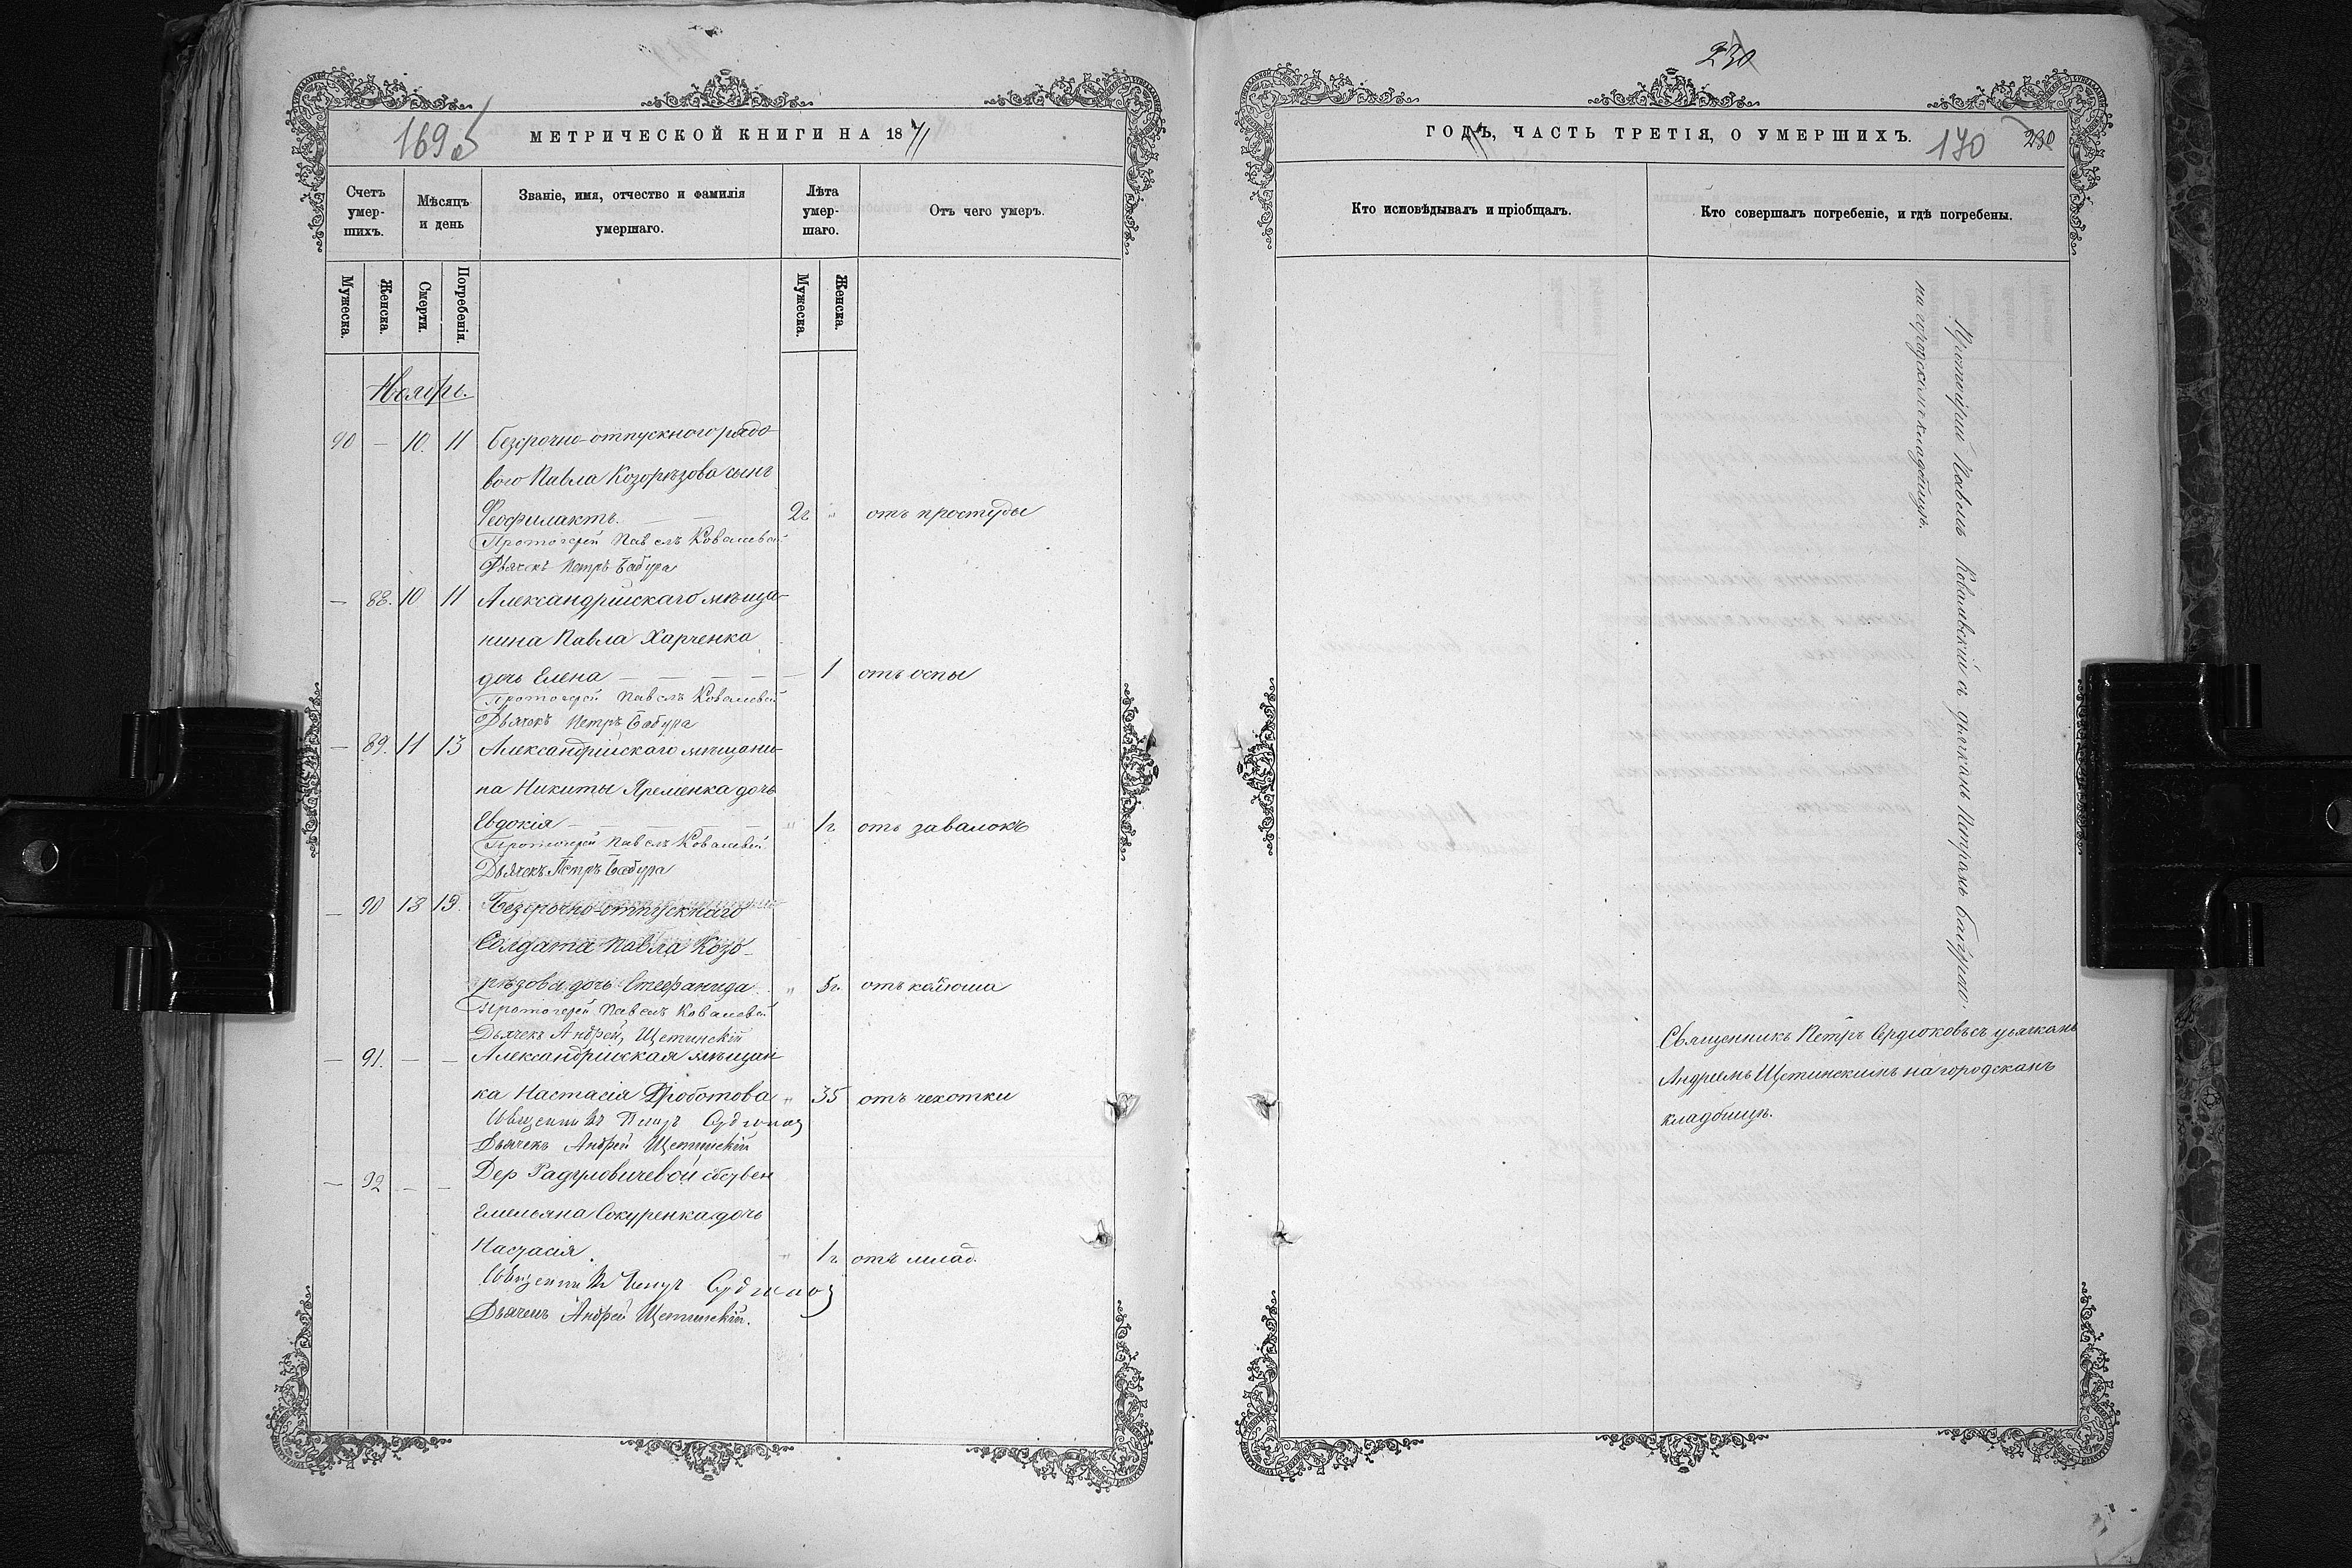 169 об
МЕТРИЧЕСКОЙ КНИГИ НА 1871
Счетъ умер-шихъ.
Мѣсяцъ и день
Званіе, имя, отчество и фамилія умершаго.
Лѣта умер-шаго.
Отъ чего умеръ.
Мужеска.
Женска.
Смерти.
Погребенія.
Мужеска.
Женска.
Ноябрь.
90 — 10. 11 безсрочно-отпускного рядо-
вого Павла Козорѣзова сынъ
Феофилактъ. — — 2г. " отъ простуды
Протоіерей Павелъ Ковалевскій
Дьячекъ Петръ Бабура
— 88. 10 11 Александрійскаго мѣща-
нина Павла Харченка
дочь Елена — — — — — 1 отъ оспы
Протоіерей Павелъ Ковалевскій
Дьячекъ Петръ Бабура
— 89. 11 13 Александрійскаго мѣщани-
на Никиты Яременка дочь
Евдокія — — — " 1г. отъ завалокъ
Протоіерей Павелъ Ковалевскій
Дьячекъ Петръ Бабура
— 90 13 13. Безсрочно-отпускнаго
Солдата Павла Козо-
рѣзова дочь Стефанида " 5г. отъ
Протоіерей Павелъ Ковалевскій
Дьячекъ Андрей Щетинскій
— 91. — — Александрійская мѣщан
ка Настасія Дроботова " 35 отъ чехотки
Священникъ Петръ Сердюковъ
Дьячекъ Андрей Щетинскій
— 92 — — Дер Радуловичевой собствен
Емельяна Сокуренка дочь
Настасія. " 1г. отъ млад.
Священникъ Петръ Сердюковъ
Дьячекъ Андрей Щетинскій.
230
ГОДЪ, ЧАСТЬ ТРЕТІЯ, О УМЕРШИХЪ.
170
230
Кто исповѣдывалъ и пріобщалъ.
Кто совершалъ погребеніе, и гдѣ погребены.
Протоіерей Павелъ Ковалевскій съ дьячкомъ Петромъ Бабурою
на городскомъ кладбищѣ.
Священникъ Петръ Сердюковъ съ дьячкомъ
Андреемъ Щетинскимъ на городскомъ
кладбищѣ.